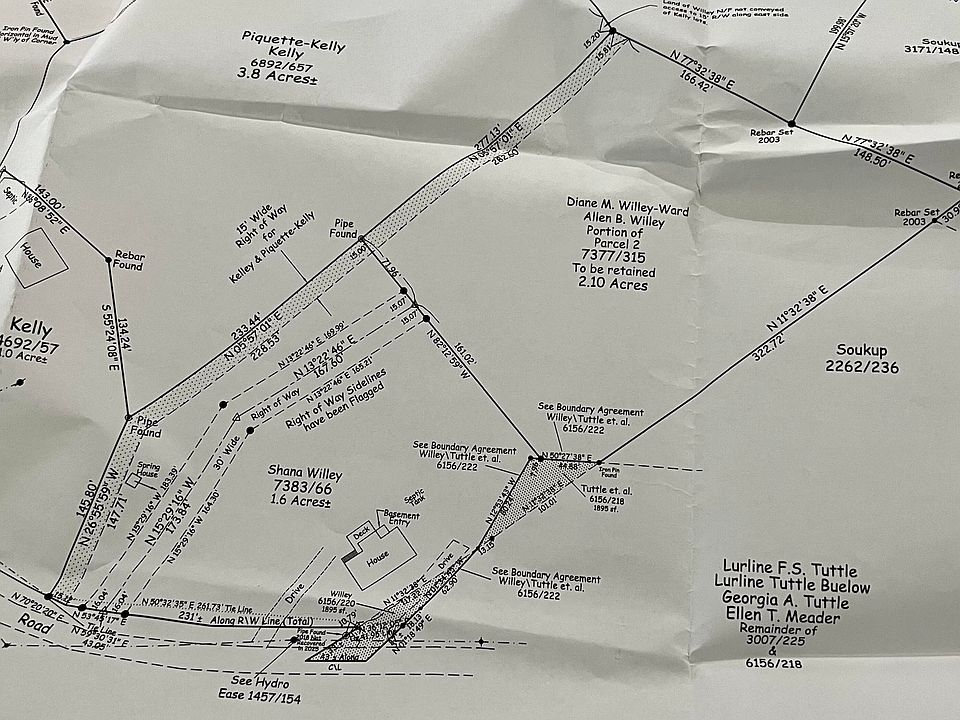 Found
Iron Pin Found
Horizontal in Mud
W'ly of Corner
Piquette-Kelly
Kelly
6892/657
3.8 Acres±
Land of Willey N/F not conveyed
access to 15' R/W along east side
of Kelly lot
15.20'
15.81'
N 77°32'38" E
166.42'
Soukup
3171/148
Rebar Set
2003
N 77°32'38" E
148.50'
Rebar Set
2003
277.13'
N 05°57'01" E
Septic
143.00'
House
Rebar
Found
134.24'
S 55°24'08" E
Kelly
4692/57
1.0 Acre±
15' Wide
Right of Way
for
Kelley & Piquette-Kelly
Pipe
Found
15.00'
71.96'
15.07'
15.07'
Diane M. Willey-Ward
Allen B. Willey
Portion of
Parcel 2
7377/315
To be retained
2.10 Acres
N 11°32'38" E
322.72'
Soukup
2262/236
233.44'
N 05°57'01" E
228.53'
N 13°22'46" E 169.99'
N 13°22'46" E
167.60'
N 13°22'46" E 165.21'
Right of Way
Right of Way Sidelines
have been Flagged
30' Wide
161.02'
N 82°12'59" W
Pipe
Found
Spring
House
145.80'
N 26°55'59" W
147.71'
N 15°29'16" W 183.39'
N 15°29'16" W
173.84'
N 15°29'16" W 164.30'
Shana Willey
7383/66
1.6 Acres±
See Boundary Agreement
Willey\Tuttle et. al.
6156/222
See Boundary Agreement
Willey\Tuttle et. al.
6156/222
N 50°27'38" E
44.88'
Iron Pin
Found
Tuttle et. al.
6156/218
1895 sf.
101.01'
13.15'
Septic
Tank
Basement
Entry
Deck
House
Drive
Drive
See Boundary Agreement
Willey\Tuttle et. al.
6156/222
Willey
6156/220
1895 sf.
N 11°32'38" E
62.90'
N 50°32'35" E 261.73' Tie Line
231'± Along R\W Line (Total)
16.04'
16.04'
N 70°20'20" E
N 53°45'17" E
Tie Line
N 59°30'31" E
43.05'
Road
Pipe Found
2018 Not
Recovered
in 2025
C\L
See Hydro
Ease 1457/154
Lurline F.S. Tuttle
Lurline Tuttle Buelow
Georgia A. Tuttle
Ellen T. Meader
Remainder of
3007/225
&
6156/218